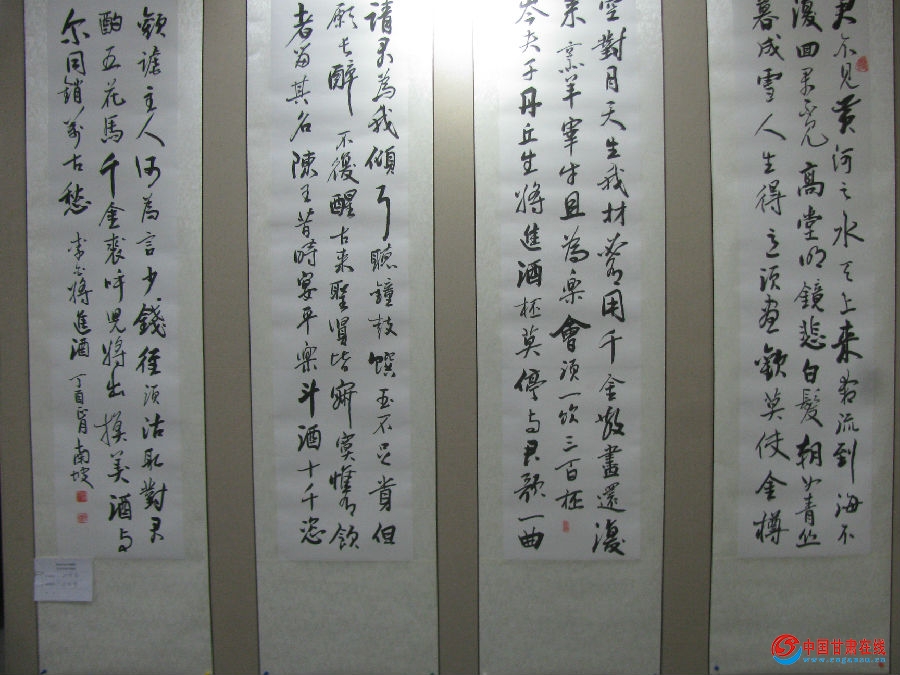 君不見黄河之水天上来奔流到海不
復回君不見高堂明鏡悲白髮朝如青丝
暮成雪人生得意须盡歡莫使金樽
空對月天生我材必有用千金散盡還復
来烹羊宰牛且為樂會须一饮三百杯
岑夫子丹丘生將進酒杯莫停与君歌一曲
請君為我傾耳聽鐘鼓饌玉不足貴但
願长醉不復醒古来聖賢皆寂寞惟有飲
者留其名陳王昔時宴平樂斗酒十千恣
歡謔主人何為言少錢徑须沽取對君
酌五花馬千金裘呼兒將出換美酒与
尔同銷萬古愁 李白將進酒 丁酉 南坡
中国甘肃在线
www.cngansu.cn